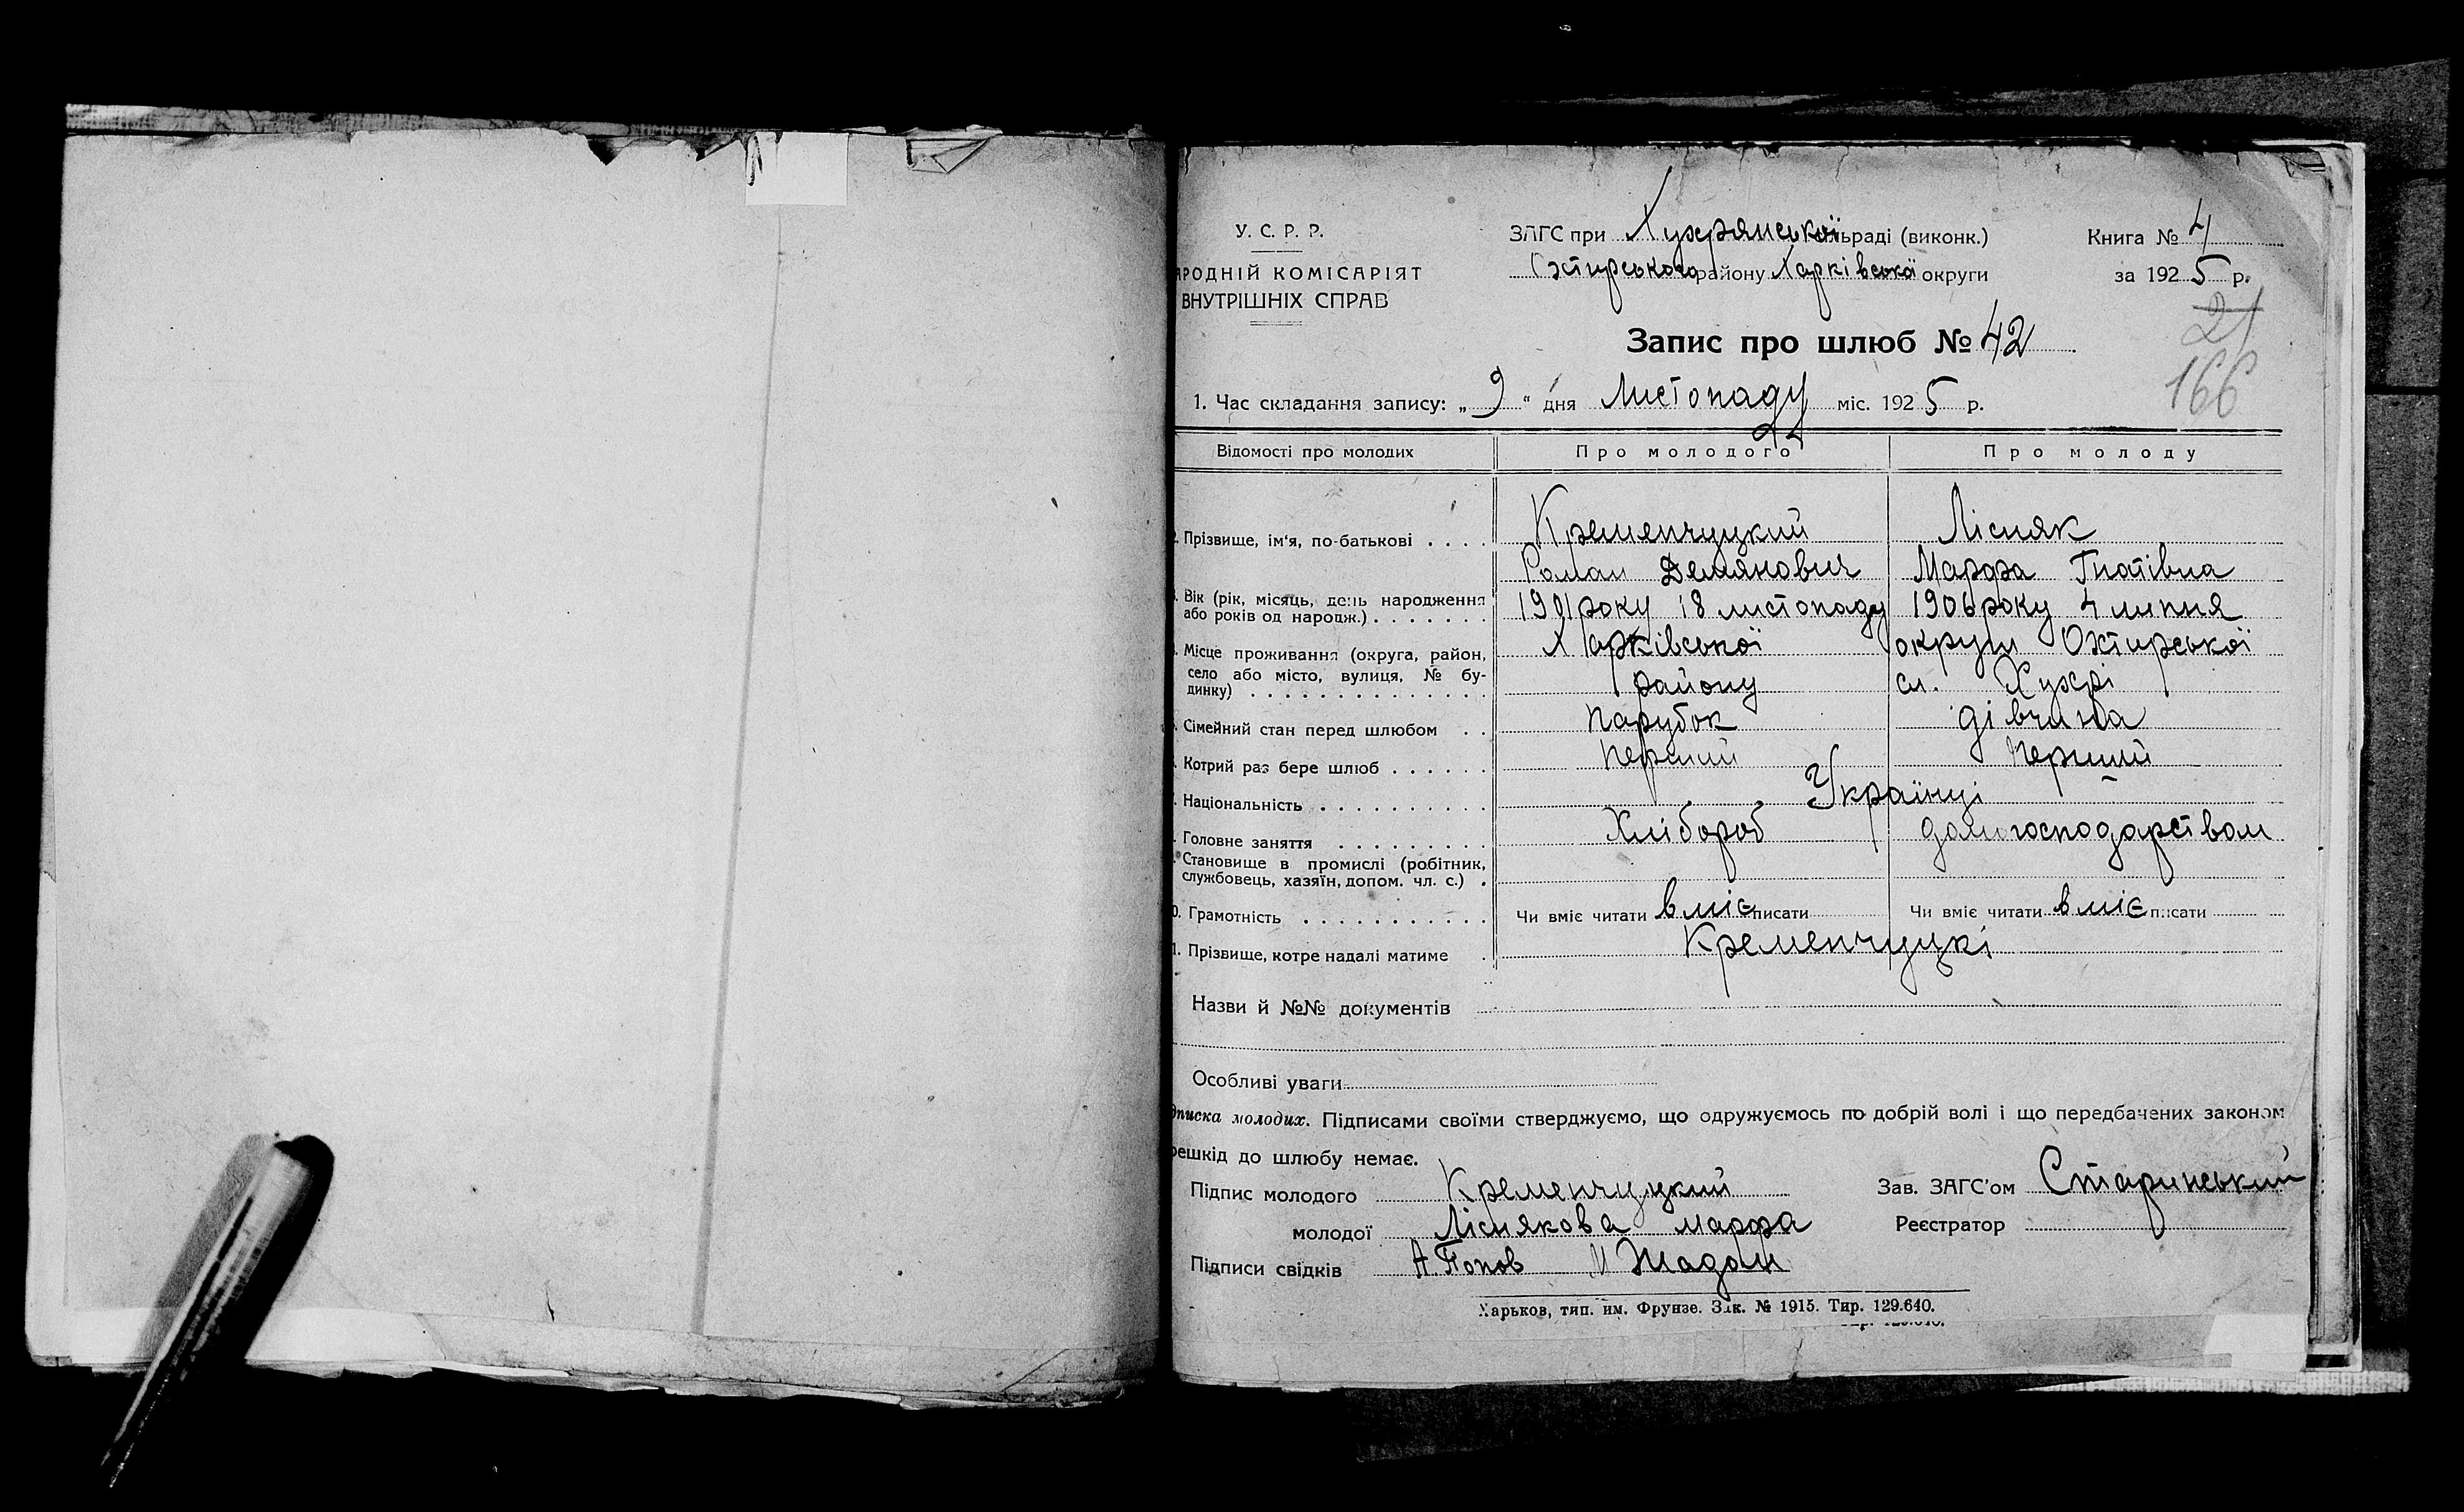 У. С. Р. Р.
РОДНІЙ КОМІСАРІЯТ
ВНУТРІШНІХ СПРАВ
ЗАГС при Хухрянської сільраді (виконк.)
Охтирського району Харківської округи
Книга № 4
за 1925 р.
21
166
Запис про шлюб № 42
1. Час складання запису: „ 9 “ дня Листопаду міс. 1925 р.
Відомості про молодих Про молодого Про молоду
Прізвище, ім'я, по-батькові . . . . Кременчуцкий Лісняк
Роман Демянович Марфа Гнатівна
Вік (рік, місяць, день народження або років од народж.) . . . . . . . 1901 року 18 листопаду 1906 року 4 липня
Місце проживання (округа, район, село або місто, вулиця, № будинку) . . . . Харківської округи Охтирської
району сл. Хухрі
Сімейний стан перед шлюбом . . Парубок дівчина
Котрий раз бере шлюб . . . . . . Перший Перший
Національність . . . . . . . . . . Українці
Головне заняття . . . . . . . . . Хлібороб домогосподарством
Становище в промислі (робітник, службовець, хазяїн, допом. чл. с.) .
0. Грамотність . . . . . . . . . . . Чи вміє читати вміє писати Чи вміє читати вміє писати
1. Прізвище, котре надалі матиме . Кременчуцкі
Назви й №№ документів
Особливі уваги
дписка молодих. Підписами своїми стверджуємо, що одружуємось по добрій волі і що передбачених законом
решкід до шлюбу немає.
Підпис молодого Кременчуцкий Зав. ЗАГС'ом Старинський
молодої Ліснякова марфа Реєстратор
Підписи свідків А. Попов И Жадан
Харьков, тип. им. Фрунзе. Зак. № 1915. Тир. 129.640.